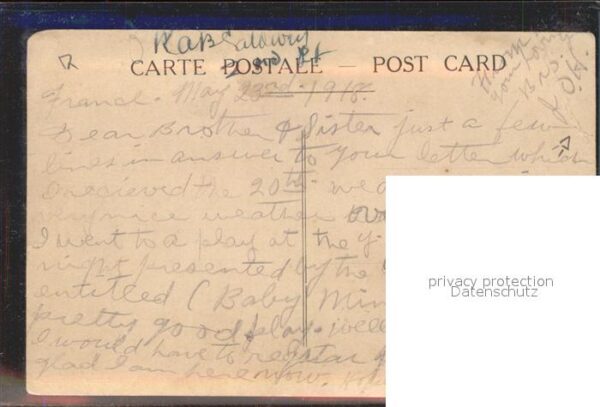 2nd Pt
CARTE POSTALE — POST CARD
From
your loving
Bro.
France. May 23rd. 1918.
Dear Brother & Sister just a few
lines in answer to your letter which
I recieved the 20th. we a
very nice weather
I went to a play at the Y.
night presented by the
entitled (Baby Min
pretty good play. Well
I would have to regstar
glad I am here now.
privacy protection
Datenschutz